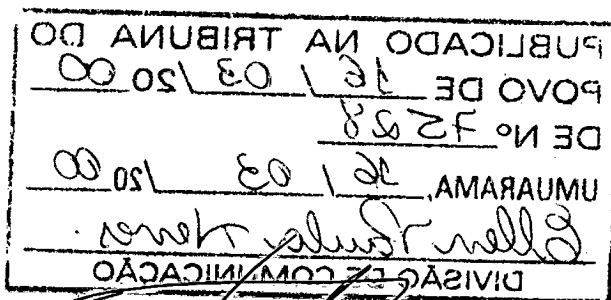 PUBLICADO NA TRIBUNA DO
POVO DE 16 / 03 /20 00
DE Nº 7528
UMUARAMA, 16 / 03 /20 00
Ellen Paula Neves
DIVISÃO DE COMUNICAÇÃO